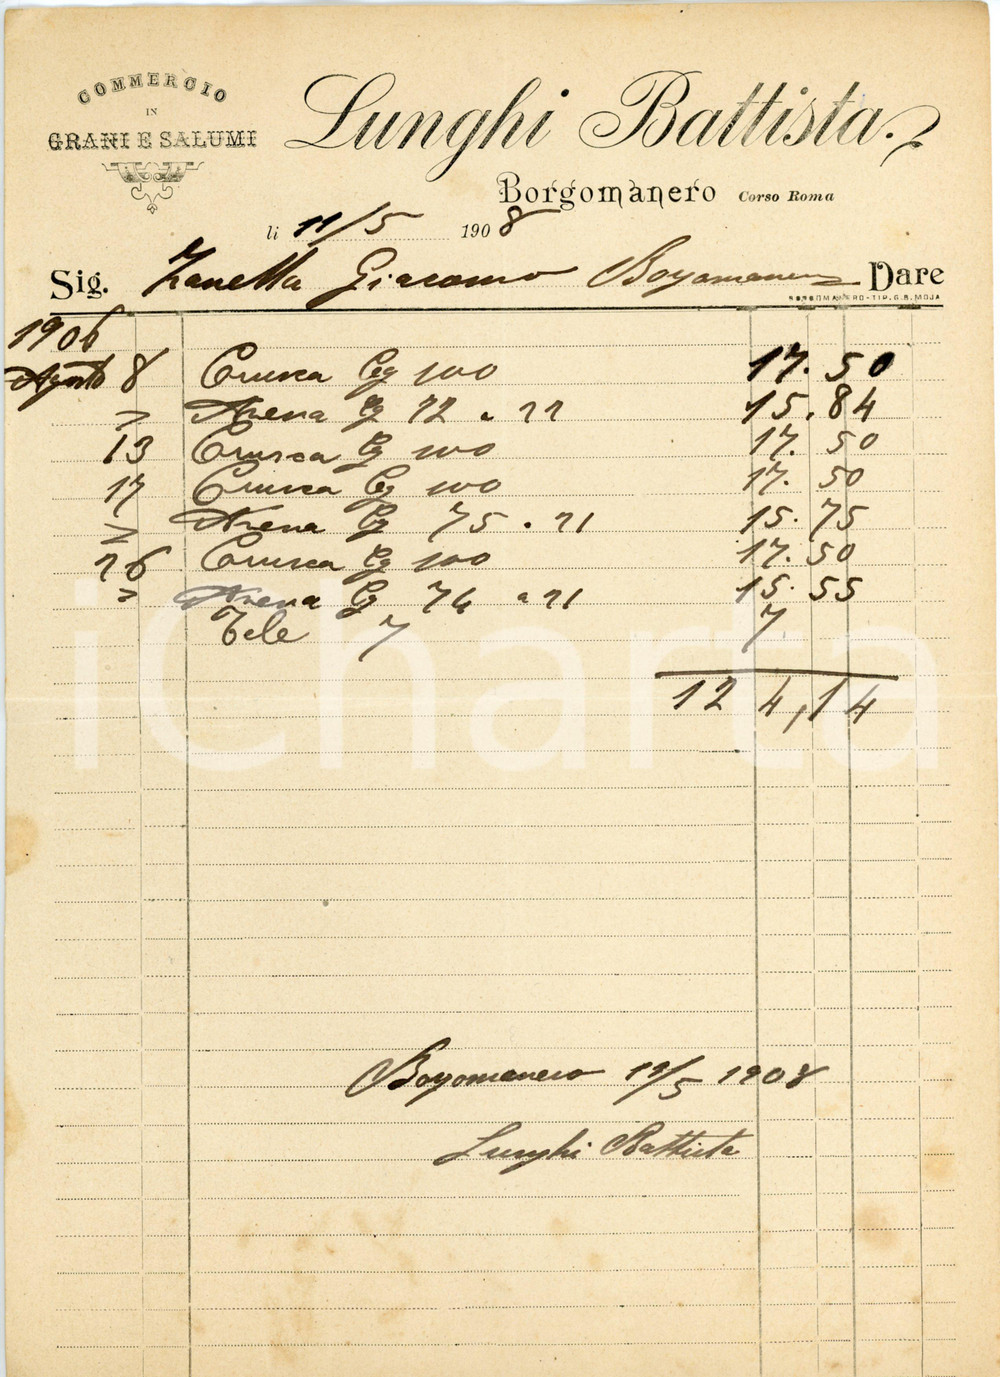 COMMERCIO
IN
GRANI E SALUMI
Lunghi Battista.
Borgomanero Corso Roma
li 11/5 1908
Sig. Zanetta Giacomo Borgomanero Dare
BORGOMANERO-TIP. G.B. MOJA
1906
Agosto 8 Crusca Cg 100 17.50
" Avena Cg 72 a 22 15.84
13 Crusca Cg 100 17.50
17 Crusca Cg 100 17.50
" Avena Cg 75 a 21 15.75
26 Crusca Cg 100 17.50
" Avena Cg 74 a 21 15.55
Tele 7 7
124,14
iCharta
Borgomanero 12/5 1908
Lunghi Battista